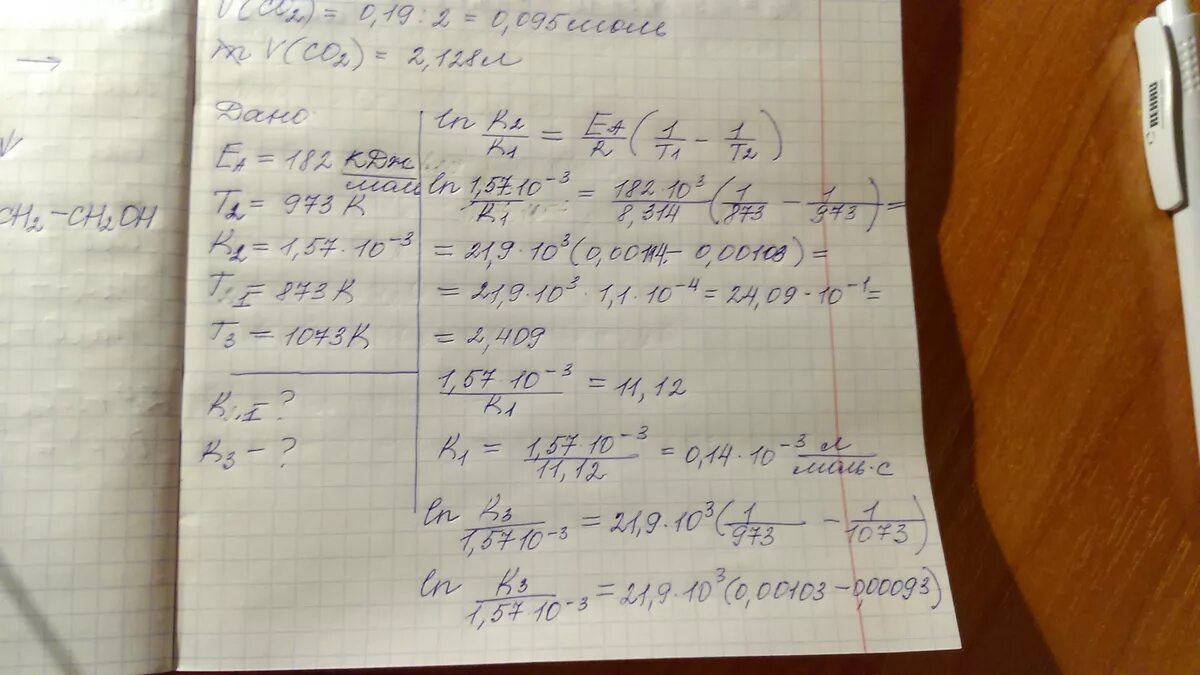 ν(CO₂) = 0,19 : 2 = 0,095 моль
V(CO₂) = 2,128 л
→
CH₂ – CH₂OH
Дано
E_A = 182 кДж/моль
T₂ = 973 K
K₂ = 1,57 · 10⁻³
T_I = 873 K
T₃ = 1073 K
K_I ?
K₃ – ?
ln K₂/K₁ = E_A/R (1/T₁ – 1/T₂)
ln 1,57·10⁻³/K₁ = 182·10³/8,314 (1/873 – 1/973) =
= 21,9 · 10³ (0,00114 – 0,00103) =
= 21,9 · 10³ · 1,1 · 10⁻⁴ = 24,09 · 10⁻¹ =
= 2,409
1,57 · 10⁻³/K₁ = 11,12
K₁ = 1,57·10⁻³/11,12 = 0,14 · 10⁻³ л/моль·с
ln K₃/1,57·10⁻³ = 21,9 · 10³ (1/973 – 1/1073)
ln K₃/1,57·10⁻³ = 21,9 · 10³ (0,00103 – 0,00093)